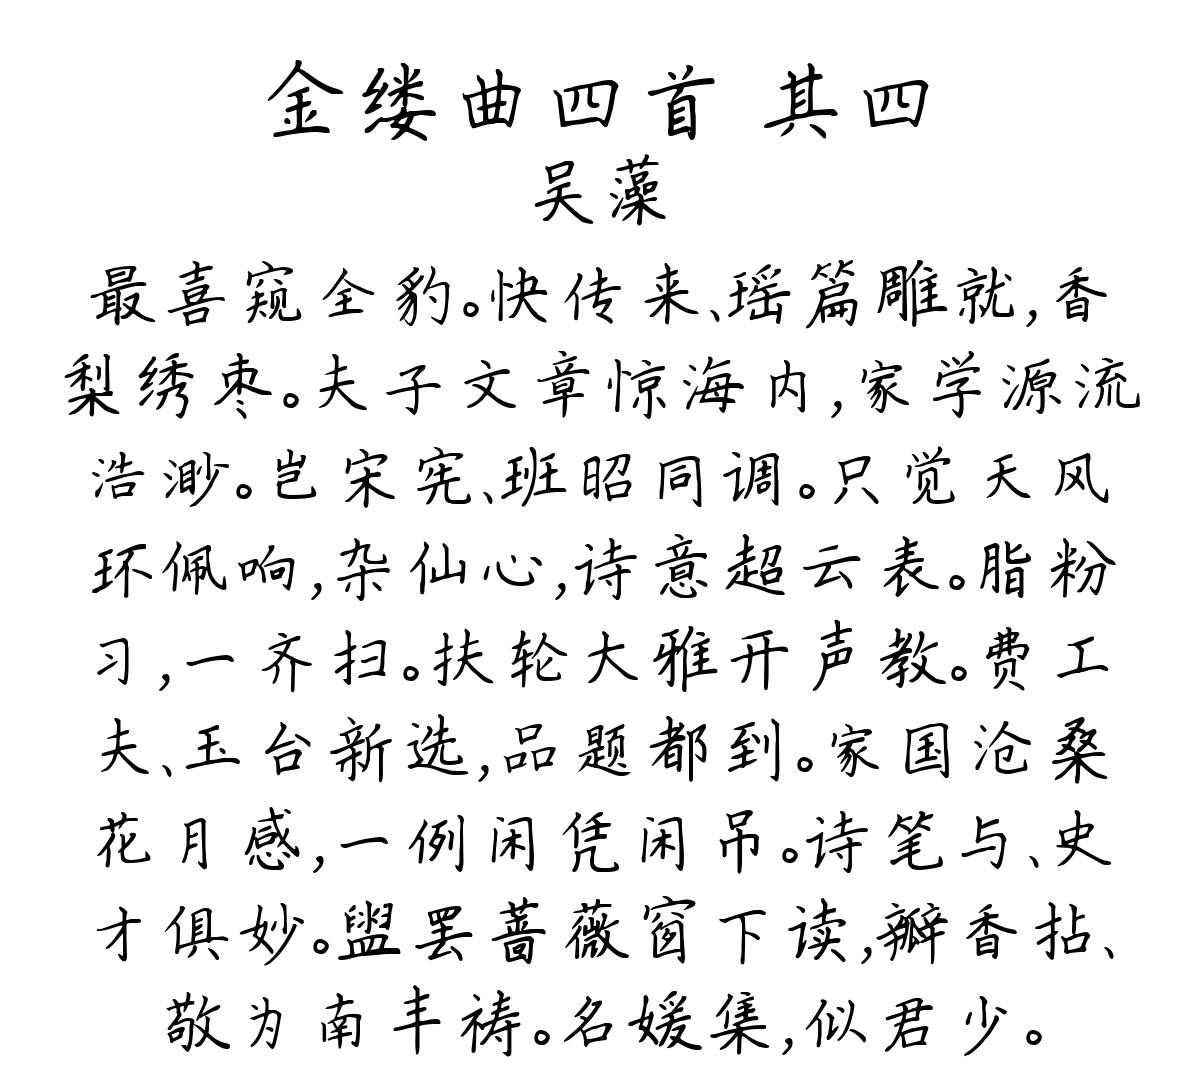 金缕曲四首 其四
吴藻
最喜窥全豹。快传来、瑶篇雕就,香
梨绣枣。夫子文章惊海内,家学源流
浩渺。岂宋宪、班昭同调。只觉天风
环佩响,杂仙心,诗意超云表。脂粉
习,一齐扫。扶轮大雅开声教。费工
夫、玉台新选,品题都到。家国沧桑
花月感,一例闲凭闲吊。诗笔与、史
才俱妙。盥罢蔷薇窗下读,瓣香拈、
敬为南丰祷。名媛集,似君少。